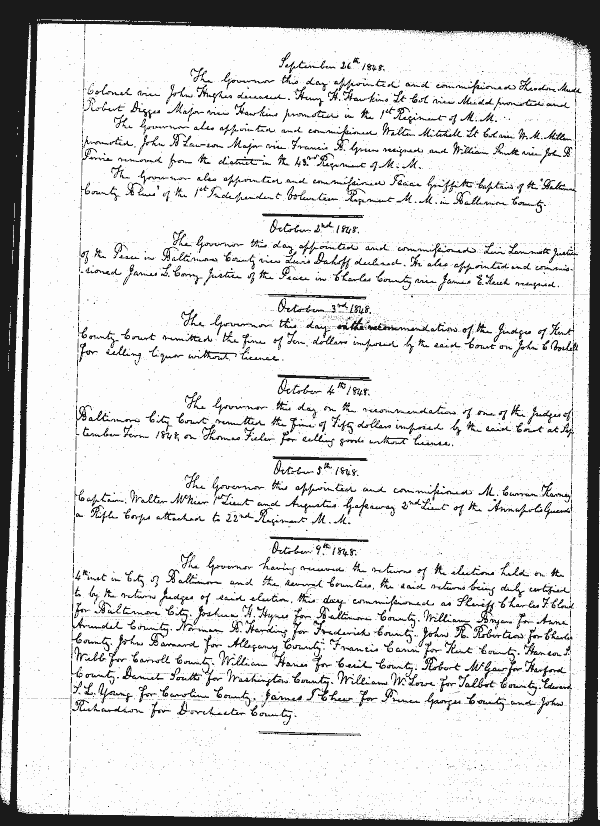 September 26th 1848.
The Governor this day appointed and commissioned Theodore Mudd
Colonel vice John Hughes deceased. Henry H. Hawkins Lt Col vice Mudd promoted and
Robert Digges Major vice Hawkins promoted in the 1st Regiment of M. M.
The Governor also appointed and commissioned Walter Mitchell Lt Col vice W. M. Miller
promoted, John B Lawson Major vice Francis B. Green resigned and William vice John B
removed from the district in the 43rd Regiment of M. M.
The Governor also appointed and commissioned Isaac Griffith Captain of the Baltimore
County Blues' of the 1st Independent Volunteer Regiment M. M. in Baltimore County.
October 2nd 1848.
The Governor this day appointed and commissioned Levi Justice
of the Peace in Baltimore County vice Lewis declined. He also appointed and commis-
-sioned James L. Justice of the Peace in Charles County vice James E. Keech resigned.
October 3rd 1848.
The Governor this day on the recommendations of the Judges of Kent
County Court remitted the fine of Ten dollars imposed by the said Court on John C
for selling liquor without licence.
October 4th 1848.
The Governor this day on the recommendation of one of the Judges of
Baltimore City Court remitted the fine of Fifty dollars imposed by the said Court at Sep-
-tember Term 1848, on Thomas for selling goods without licence.
October 5th 1848.
The Governor this appointed and commissioned M. Curran
Captain. Walter McNier 1st Lieut and Augustus Gassaway 2nd Lieut of the Annapolis Guards
a Rifle Corps attached to 22nd Regiment M. M.
October 9th 1848.
The Governor having received the returns of the elections held on the
4th inst in City of Baltimore and the several Counties, the said returns being duly certified
to by the return Judges of said election, this day commissioned as Sheriff Charles F. Cloud
for Baltimore City, Joshua F. Hynes for Baltimore County. William Bryan for Anne
Arundel County. Norman B. Harding for Frederick County. John R. Robertson for Charles
County John Barnard for Allegany County Francis Cann for Kent County. Hanson T.
Webb for Carroll County. William Hanes for Cecil County. Robert McGaw for Harford
County. Daniel South for Washington County. William W. Lowe for Talbot County. Edward
S. L. Young for Caroline County. James T Chew for Prince Georges County and John
Richardson for Dorchester County.